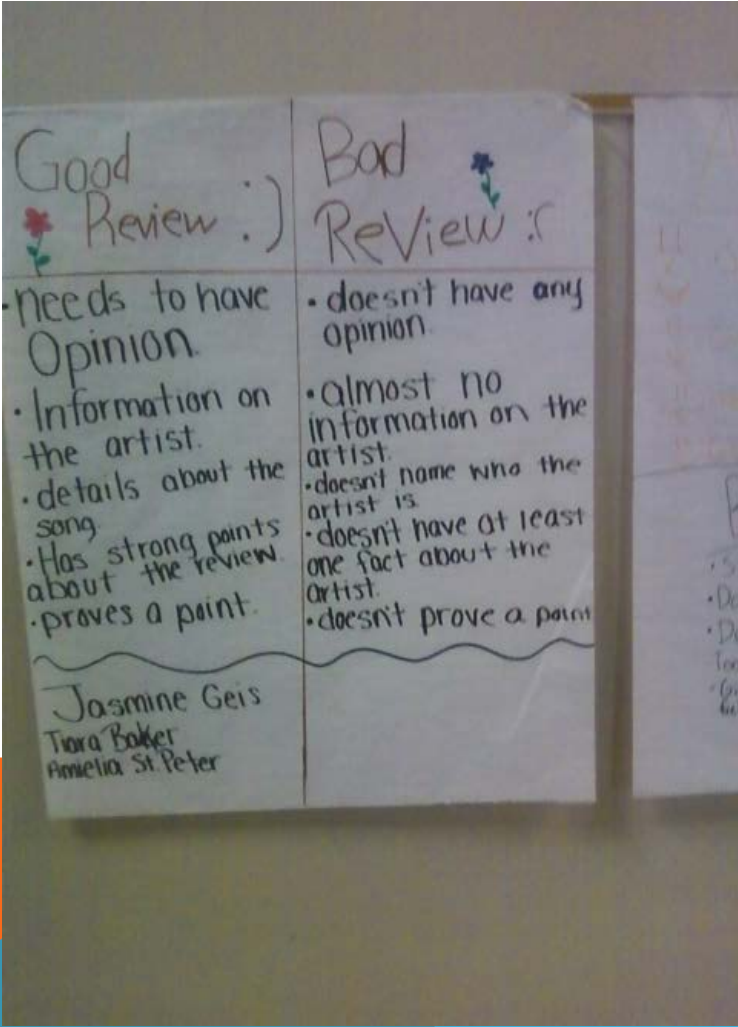 Good
Review :)
• needs to have
Opinion.
• Information on
the artist.
• details about the
song.
• Has strong points
about the review.
• proves a point.
Jasmine Geis
Tiara Baker
Amielia St. Peter
Bad
ReView :(
• doesn't have any
opinion.
• almost no
information on the
artist.
• doesn't name who the
artist is
• doesn't have at least
one fact about the
artist.
• doesn't prove a point